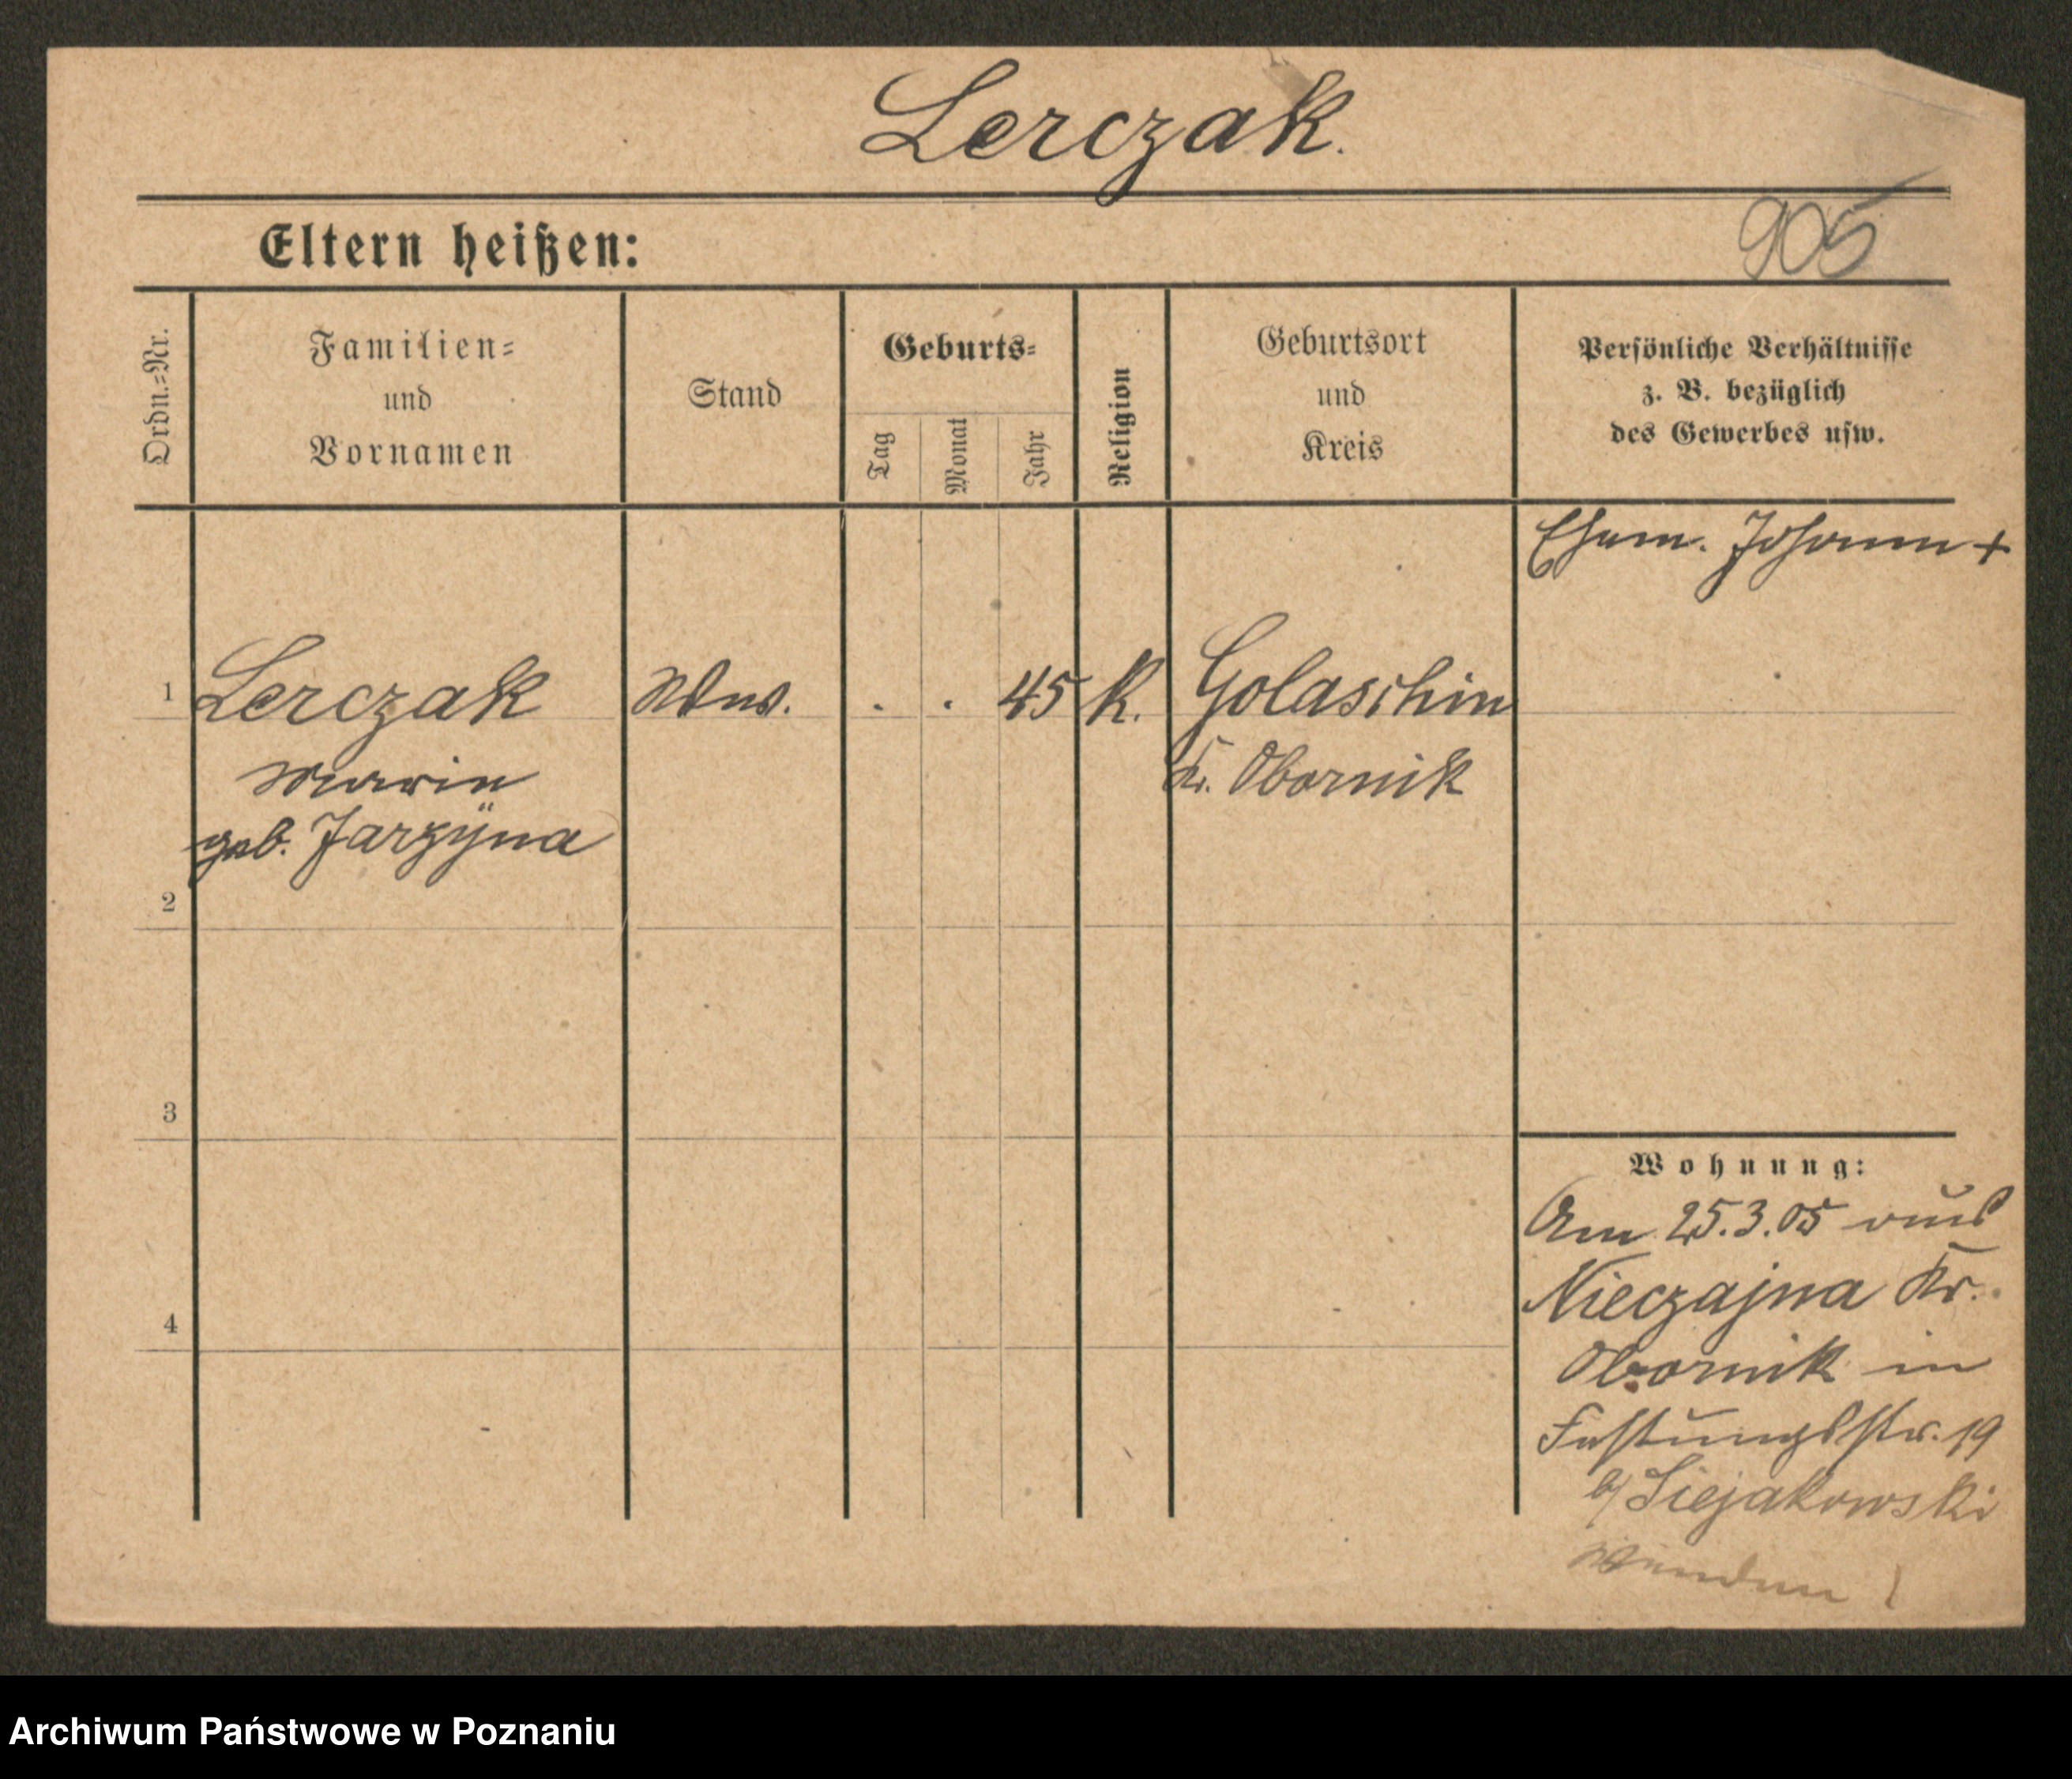 Lerczak.
Eltern heißen:
905
Ordn.=Nr.
Familien=
und
Vornamen
Stand
Geburts=
Tag
Monat
Jahr
Religion
Geburtsort
und
Kreis
Persönliche Verhältnisse
z. B. bezüglich
des Gewerbes usw.
Ehem. Johann +
1 Lerczak Wwe. . . 45 K. Golaschin
Marie Kr. Obornik
geb. Jarzÿna
2
3
4
Wohnung:
Am 25.3.05 aus
Nieczajna Kr.
Obornik in
Festungsstr. 19
b/ Siejakowski
Wenden!
Archiwum Państwowe w Poznaniu